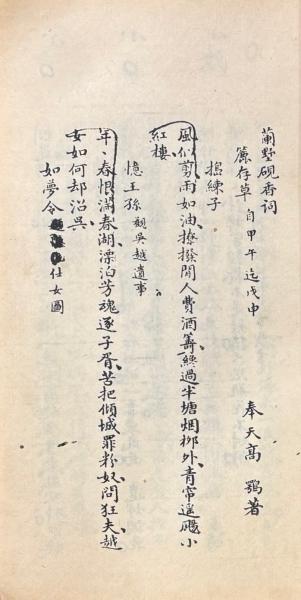 蘭墅硯香詞
簏存草 自甲午迄戊申
奉天高 鶚著
搗練子
風似剪、雨如油、撩撥閒人費酒籌、纔過半塘烟柳外、青帘遥颺小
紅樓、
憶王孫 觀吳越遺事
年、春恨滿春湖、漂泊芳魂逐子胥、苦把傾城罪粉奴、問狂夫、越
女如何却沼吳、
如夢令 仕女圖